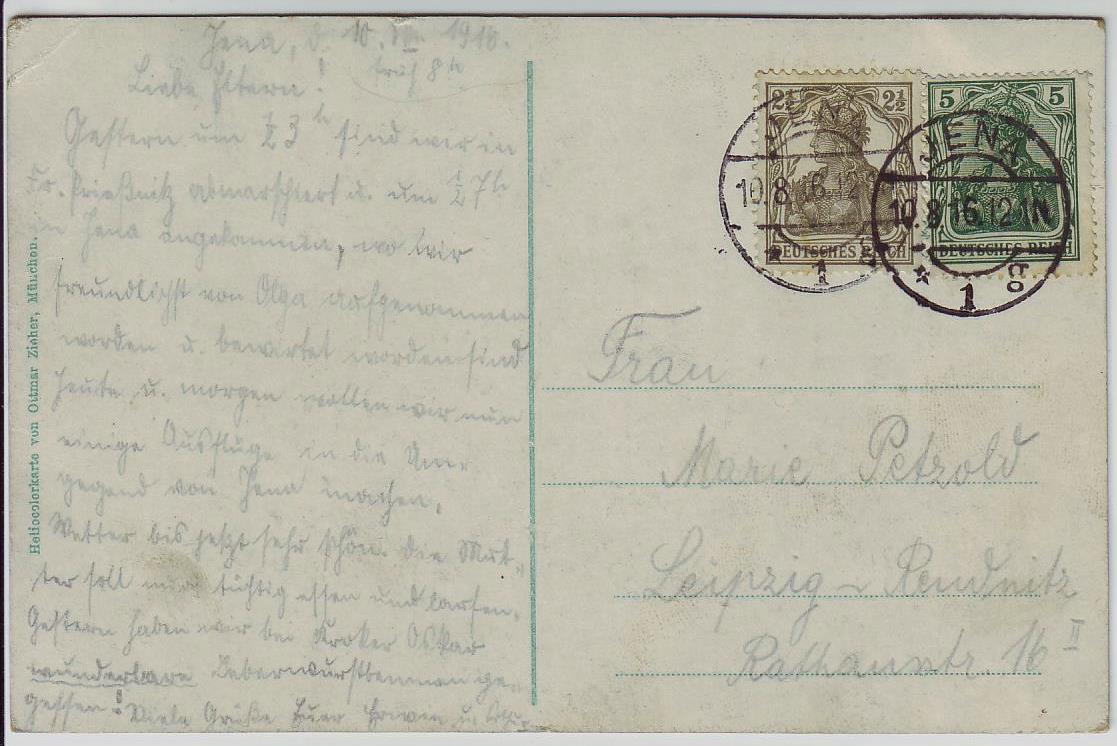 Jena, d. 10. VIII. 1916.
früh 8 h
Liebe Eltern!
Gestern um ½ 3 h sind wir in
Gr. Prießnitz abmarschiert u. um ½ 7 h
in Jena angekommen, wo wir
freundlichst von Olga aufgenommen
worden u. bewirtet worden sind
Heute u. morgen wollen wir nun
einige Ausflüge in die Um-
gegend von Jena machen.
Wetter bis jetzt sehr schön. Die Mut-
ter soll nur tüchtig essen und laufen.
Gestern haben wir bei Oskar
wunderbare ge-
gessen! Viele Grüße Euer u.
Heliocolorkarte von Ottmar Zieher, München.
2½ 2½
DEUTSCHES REICH
5 5
DEUTSCHES REICH
JENA
10.8.16.12-1N
* 1
JENA
10.8.16.12-1N
* 1
Frau
Marie Petzold
Leipzig-Reudnitz
Rathausstr. 16 II